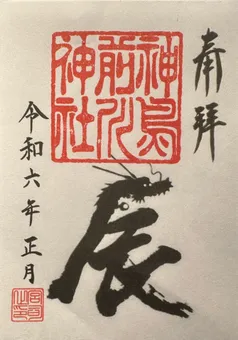 奉拝
神鳥
前川
神社
辰
令和六年正月